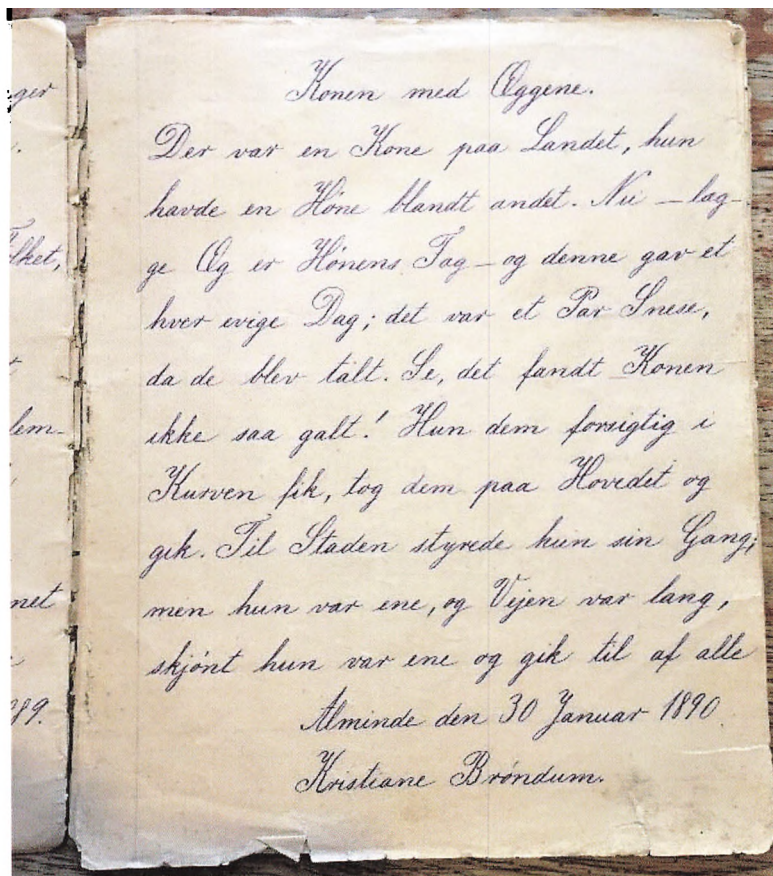 ger
Folket,
lem-
net
89.
Konen med Œggene.
Der var en Kone paa Landet, hun
havde en Höne blandt andet. Nu — læg-
ge Œg er Hönens Fag — og denne gav et
hver evige Dag; det var et Par Snese,
da de blev talt. Se, det fandt Konen
ikke saa galt! Hun dem forsigtig i
Kurven fik, tog dem paa Hovedet og
gik. Til Staden styrede hun sin Gang;
men hun var ene, og Vejen var lang,
skjönt hun var ene og gik til af alle
Alminde den 30 Januar 1890.
Kristiane Bröndum.